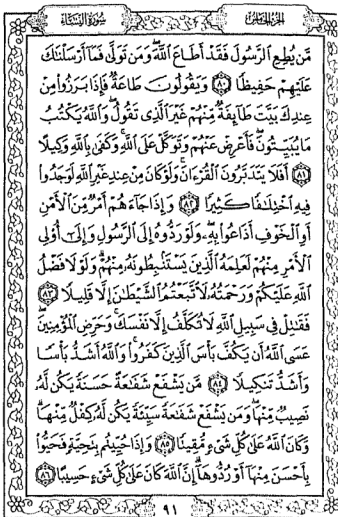 الجزء الخامس
سورة النساء
مَّن يُطِعِ ٱلرَّسُولَ فَقَدْ أَطَاعَ ٱللَّهَ وَمَن تَوَلَّىٰ فَمَآ أَرْسَلْنَٰكَ
عَلَيْهِمْ حَفِيظًا ٨٠ وَيَقُولُونَ طَاعَةٌ فَإِذَا بَرَزُوا۟ مِنْ
عِندِكَ بَيَّتَ طَآئِفَةٌ مِّنْهُمْ غَيْرَ ٱلَّذِى تَقُولُ وَٱللَّهُ يَكْتُبُ
مَا يُبَيِّتُونَ فَأَعْرِضْ عَنْهُمْ وَتَوَكَّلْ عَلَى ٱللَّهِ وَكَفَىٰ بِٱللَّهِ وَكِيلًا
٨١ أَفَلَا يَتَدَبَّرُونَ ٱلْقُرْءَانَ وَلَوْ كَانَ مِنْ عِندِ غَيْرِ ٱللَّهِ لَوَجَدُوا۟
فِيهِ ٱخْتِلَٰفًا كَثِيرًا ٨٢ وَإِذَا جَآءَهُمْ أَمْرٌ مِّنَ ٱلْأَمْنِ
أَوِ ٱلْخَوْفِ أَذَاعُوا۟ بِهِۦ وَلَوْ رَدُّوهُ إِلَى ٱلرَّسُولِ وَإِلَىٰٓ أُو۟لِى
ٱلْأَمْرِ مِنْهُمْ لَعَلِمَهُ ٱلَّذِينَ يَسْتَنۢبِطُونَهُۥ مِنْهُمْ وَلَوْلَا فَضْلُ
ٱللَّهِ عَلَيْكُمْ وَرَحْمَتُهُۥ لَٱتَّبَعْتُمُ ٱلشَّيْطَٰنَ إِلَّا قَلِيلًا ٨٣
فَقَٰتِلْ فِى سَبِيلِ ٱللَّهِ لَا تُكَلَّفُ إِلَّا نَفْسَكَ وَحَرِّضِ ٱلْمُؤْمِنِينَ
عَسَى ٱللَّهُ أَن يَكُفَّ بَأْسَ ٱلَّذِينَ كَفَرُوا۟ وَٱللَّهُ أَشَدُّ بَأْسًا
وَأَشَدُّ تَنكِيلًا ٨٤ مَّن يَشْفَعْ شَفَٰعَةً حَسَنَةً يَكُن لَّهُۥ
نَصِيبٌ مِّنْهَا وَمَن يَشْفَعْ شَفَٰعَةً سَيِّئَةً يَكُن لَّهُۥ كِفْلٌ مِّنْهَا
وَكَانَ ٱللَّهُ عَلَىٰ كُلِّ شَىْءٍ مُّقِيتًا ٨٥ وَإِذَا حُيِّيتُم بِتَحِيَّةٍ فَحَيُّوا۟
بِأَحْسَنَ مِنْهَآ أَوْ رُدُّوهَآ إِنَّ ٱللَّهَ كَانَ عَلَىٰ كُلِّ شَىْءٍ حَسِيبًا ٨٦
٩١